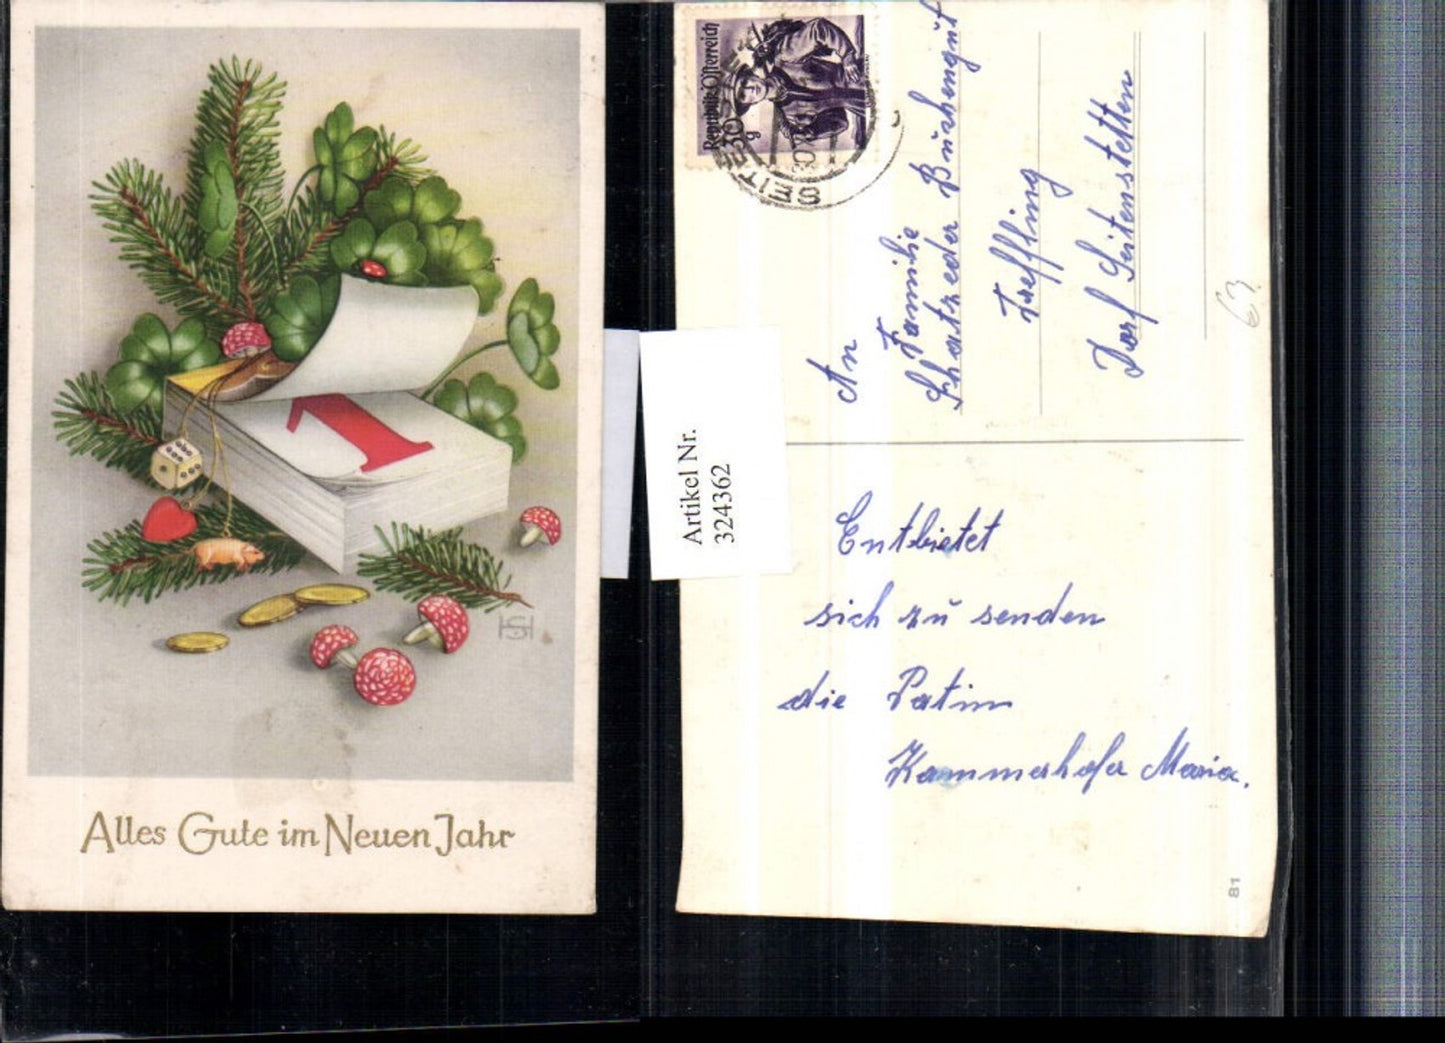 Alles Gute im Neuen Jahr
1
Artikel Nr.
324362
Republik Österreich
30
g
SEITE
An
Familie
Dorf Seitenstetten
63
Entbietet
sich zu senden
die Patin
Kammerhofer Maria.
81